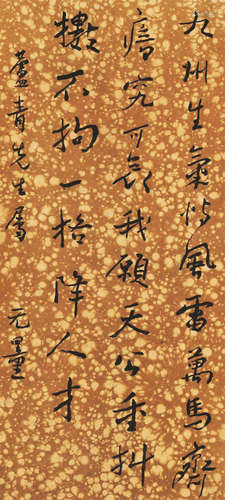 九州生氣恃風雷萬馬齊
瘖究可哀我願天公重抖
擻不拘一格降人才
蘆青先生屬 元